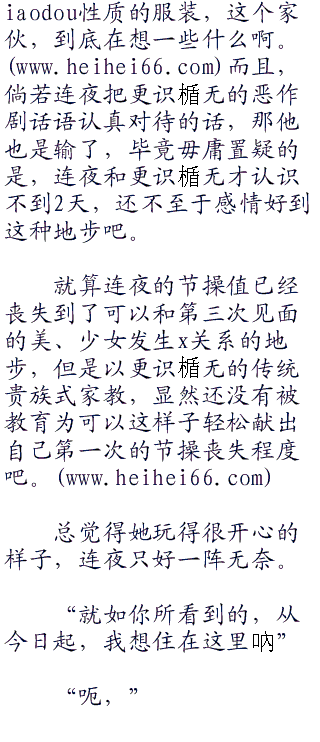 iaodou性质的服装，这个家
伙，到底在想一些什么啊。
(www.heihei66.com)而且，
倘若连夜把更识楯无的恶作
剧话语认真对待的话，那他
也是输了，毕竟毋庸置疑的
是，连夜和更识楯无才认识
不到2天，还不至于感情好到
这种地步吧。
就算连夜的节操值已经
丧失到了可以和第三次见面
的美、少女发生x关系的地
步，但是以更识楯无的传统
贵族式家教，显然还没有被
教育为可以这样子轻松献出
自己第一次的节操丧失程度
吧。(www.heihei66.com)
总觉得她玩得很开心的
样子，连夜只好一阵无奈。
“就如你所看到的，从
今日起，我想住在这里吶”
“呃，”